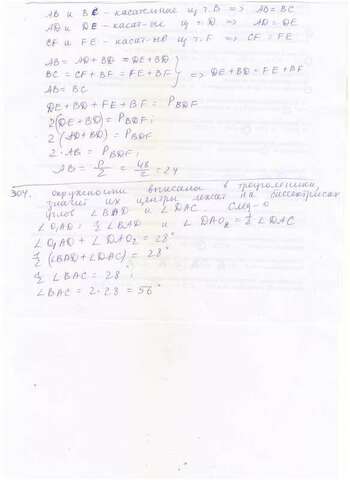 AB и BC - касательные из т.B => AB = BC
AD и DE - касат-ые из т.D => AD = DE
CF и FE - касат-ые из т.F => CF = FE
AB = AD + BD = DE + BD
BC = CF + BF = FE + BF } => DE + BD = FE + BF
AB = BC
DE + BD + FE + BF = P BDF
2(DE + BD) = P BDF;
2(AD + BD) = P BDF
2·AB = P BDF;
AB = P/2 = 48/2 = 24
304. окружности вписаны в треугольники,
значит их центры лежат на биссектрисах
углов ∠BAD и ∠DAC. След-о
∠O₁AD = 1/2 ∠BAD и ∠DAO₂ = 1/2 ∠DAC
∠O₁AD + ∠DAO₂ = 28°
1/2 (∠BAD + ∠DAC) = 28°
1/2 ∠BAC = 28°;
∠BAC = 2·28 = 56°